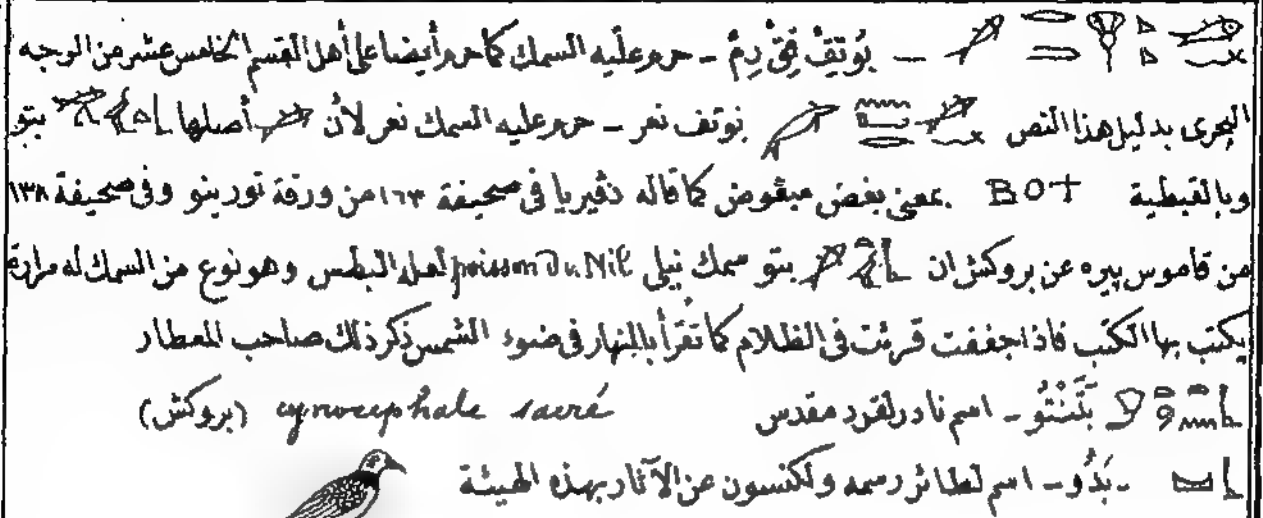 – بُوتِفْ فِقَّ رِمْ – حرم عليه السمك كما حرم أيضا على أهل القسم الخامس عشر من الوجه
البحرى بدليل هذا النص بُوتف نعر – حرم عليه السمك نعر لأن أصلها بتو
وبالقبطية BOT بمعنى بغض مبغوض كما قاله دڤيريا فى صحيفة ١٦٣ من ورقة تورينو وفى صحيفة ١٣٨
من قاموس پيره عن بروكش ان بتو سمك نيلى poisson du Nil لعله البطس وهو نوع من السمك له مرارة
يكتب بها الكتب فاذا جففت قرئت فى الظلام كما تقرأ بالنهار فى ضوء الشمس ذكر ذلك صاحب المعطار
بَثَنْتُو – اسم نادر لقرد مقدس cynocephale sacré (بروكش)
– بَدُو – اسم لطائر رسمه ولكنسون عن الآثار بهذه الهيئة